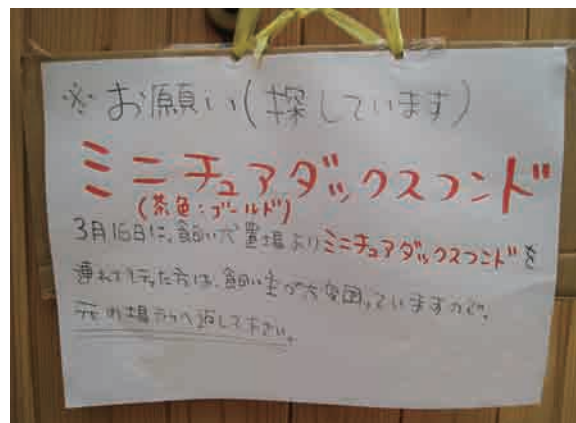 ※お願い(探しています)
ミニチュアダックスフンド
(茶色:ゴールド)
3月16日に、飼い犬置場よりミニチュアダックスフンドを
連れて行った方は、飼い主が大変困っていますので、
元の場所へ返して下さい。